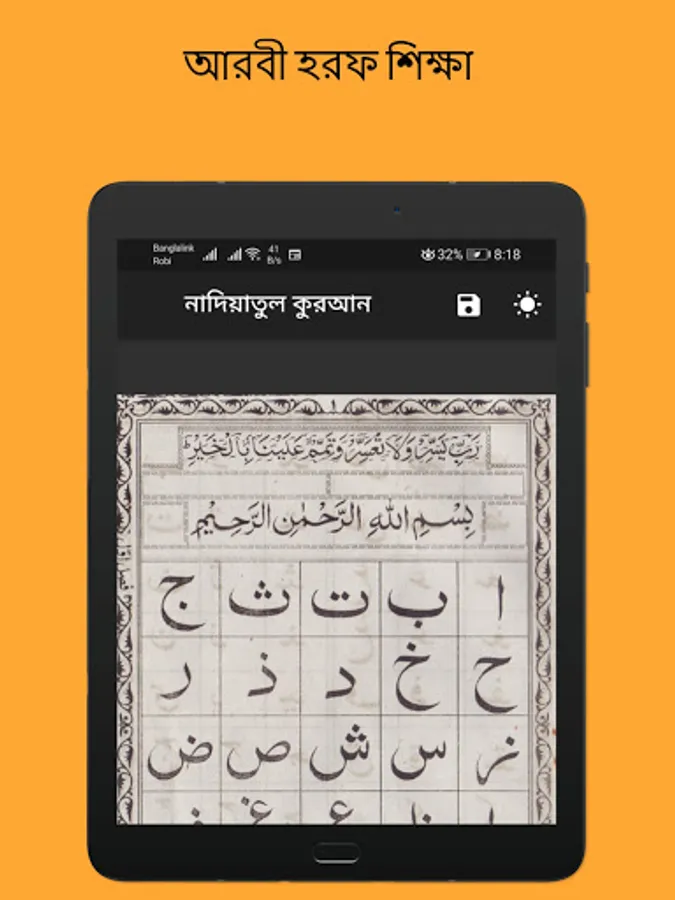 আরবী হরফ শিক্ষা
Banglalink
Robi
41
B/s
32% 8:18
নাদিয়াতুল কুরআন
١
رَبِّ يَسِّرْ وَلَا تُعَسِّرْ وَتَمِّمْ عَلَيْنَا بِالْخَيْرِ
بِسْمِ اللهِ الرَّحْمٰنِ الرَّحِيْمِ
ا ب ت ث ج
ح خ د ذ ر
ز س ش ص ض